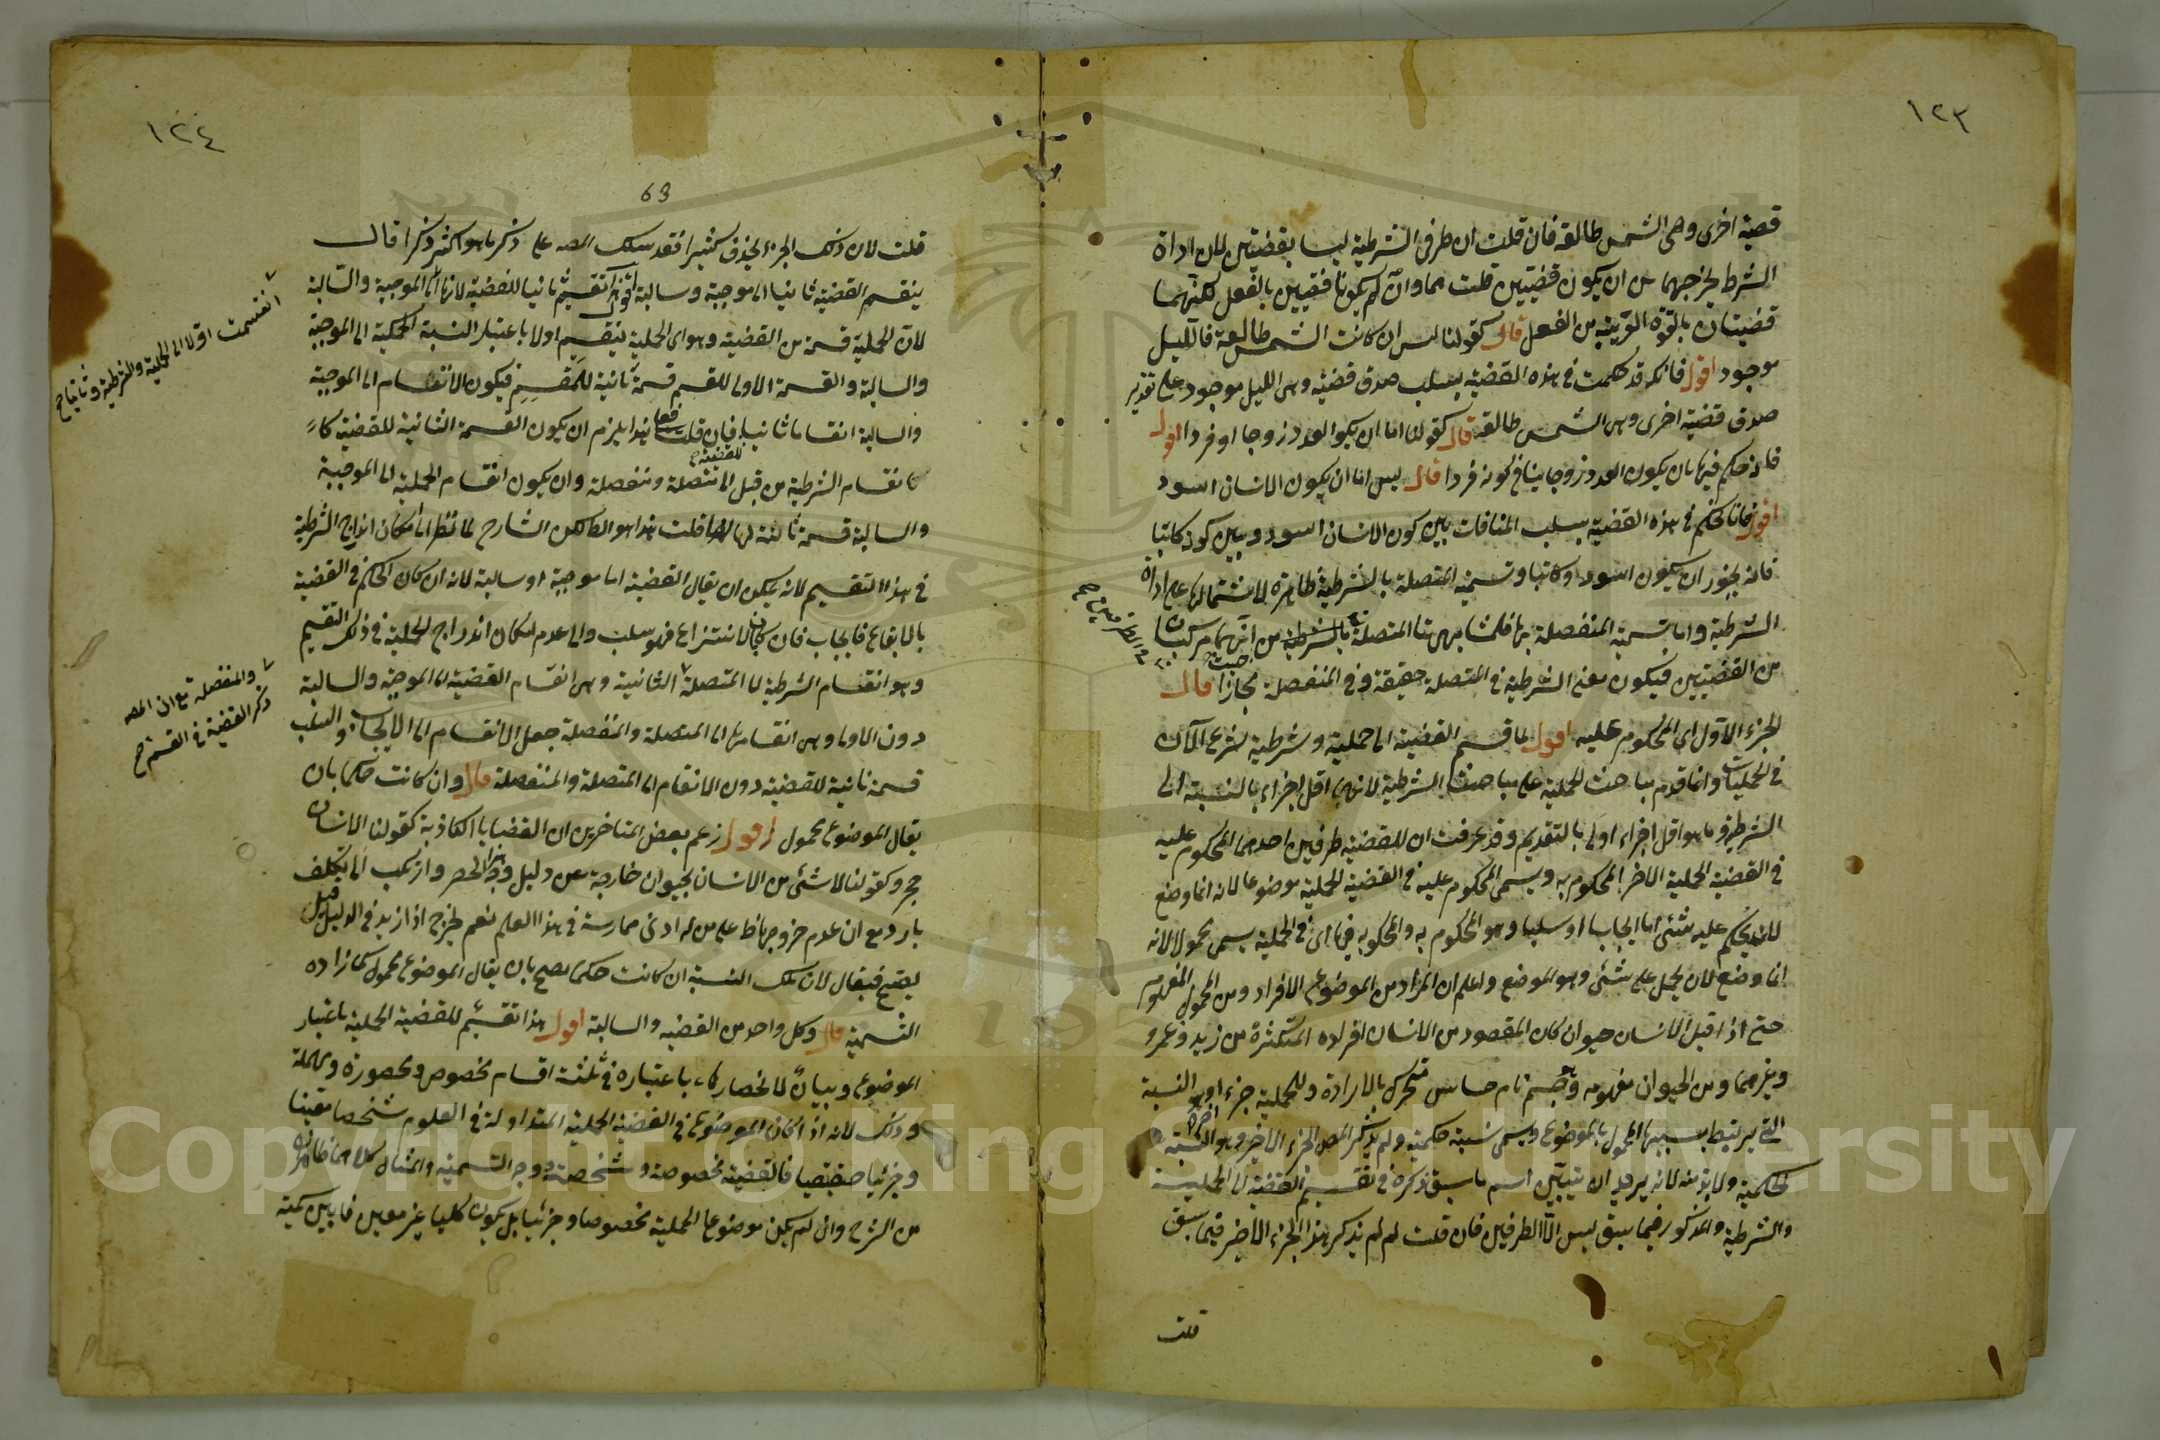 ١٢٣
قضية اخرى وهى الشمس طالعة فان قلت ان طرفى الشرطية ليسا بقضيتين لان اداة
الشرط يخرجهما من ان يكون قضيتين قلت هما وان لم يكونا قضيتين بالفعل لكنهما
قضيتان بالقوة القريبة من الفعل قال كقولنا ليس ان كانت الشمس طالعة فالليل
موجود اقول فانك قد حكمت فى هذه القضية بسلب صدق قضية وهى الليل موجود على تقدير
صدق قضية اخرى وهى الشمس طالعة قال كقولنا اما ان يكون العدد زوجا او فردا اقول
فانه حكم فيها بان يكون العدد زوجا ينافى كونه فردا قال ليس اما ان يكون الانسان اسود
اقول فانا نحكم فى هذه القضية بسلب المنافات بين كون الانسان اسود وبين كونه كاتبا
فانه يجوز ان يكون اسود وكاتبا وتسمية المتصلة بالشرطية ظاهرة لاشتمالها على اداة
الشرطية واما تسمية المنفصلة بها فلمشابهتها المتصلة بالشرطية من حيث انهما مركبتان
من القضيتين فيكون معنى الشرطية فى المتصلة حقيقة وفى المنفصلة مجازا قال
الجزء الاول اى المحكوم عليه اقول لما قسم القضية الى حملية وشرطية شرع الآن
فى الحمليات وانما قدم مباحث الحملية على مباحث الشرطية لانها اقل اجزاء بالنسبة الى
الشرطية وما هو اقل اجزاء اولى بالتقديم وقد عرفت ان للقضية طرفين احدهما المحكوم عليه
فى القضية الحملية الاخر المحكوم به ويسمى المحكوم عليه فى القضية الحملية موضوعا لانه انما وضع
لان يحكم عليه بشئ اما ايجابا او سلبا وهو المحكوم به والمحكوم به فيها اى فى الحملية يسمى محمولا لانه
انما وضع لان يحمل على شئ وهو الموضع واعلم ان المراد من الموضوع الافراد ومن المحمول المفهوم
حتى اذا قيل الانسان حيوان كان المقصود من الانسان افراده المتكثرة من زيد وعمرو
وغيرهما ومن الحيوان مفهومه وهو جسم نام حساس متحرك بالارادة وللحملية جزء اخر وهو النسبة
التى يرتبط بسببها المحمول بالموضوع ويسمى نسبة حكمية ولم يذكر المص الجزء الاخير وهو النسبة
الحكمية ولا بد منه لانه يريد ان يتبين اسم ما سبق ذكره فى تقسيم القضية الى الحملية
والشرطية والمذكور فيما سبق ليس الا الطرفين فان قلت لم لم يذكر هذا الجزء الاخير فيما سبق
قلت
١٢٤
63
قلت لان ذلك الجزء يحذف كثيرا فقد سلك المص على ذكر ما هو اكثر ذكرا قال
ينقسم القضية ثانيا الى موجبة وسالبة اقول تقسيم ثانيا للقضية لانها الى الموجبة والسالبة
لان الحملية قسمة من القضية وهو اى الحملية ينقسم اولا باعتبار النسبة الحكمية الى الموجبة
والسالبة والقسمة الاولى للقسم قسمة ثانية للمقسم فيكون الانقسام الى الموجبة
والسالبة انقساما ثانيا فان قلت فعلى هذا يلزم ان يكون القسمة الثانية للقضية
كانقسام الشرطية من قبل الى متصلة ومنفصلة وان يكون انقسام الحملية الى الموجبة
والسالبة قسمة ثالثة لها قلت هذا هو الظ لكن الشارح لما نظر الى امكان اندراج الشرطية
فى هذا التقسيم لانه يمكن ان يقال القضية اما موجبة او سالبة لانه ان كان الحكم فى القضية
بالايقاع فايجاب فان كان بالانتزاع فهو سلب والى عدم امكان اندراج الحملية فى ذلك التقسيم
وهو انقسام الشرطية الى المتصلة الثانية وهى انقسام القضية الى الموجبة والسالبة
دون الاولى وهى انقسامها الى المتصلة والمنفصلة جعل الانقسام الى الايجاب والسلب
قسمة ثانية للقضية دون الانقسام الى المتصلة والمنفصلة قال وان كانت حكما بان
يقال الموضوع محمول اقول زعم بعض المتاخرين ان القضايا الكاذبة كقولنا الانسان
حجر وكقولنا لا شئ من الانسان بحيوان خارجة عن دليل وجه الحصر وارتكب الى تكلف
بارد مع ان عدم خروجها ظ على من له ادنى ممارسة فى هذا العلم نعم يخرج اذا زيد فى الدليل قيل
يصح فيقال لان تلك النسبة ان كانت حكما يصح بان يقال الموضوع محمول كما زاده
الشمسية قال وكل واحد من القضية والسالبة اقول هذا تقسيم للقضية الحملية باعتبار
الموضوع وبيان لانحصارها باعتباره فى ثلثة اقسام مخصوص ومحصورة ومهملة
وذلك لانه اذا كان الموضوع فى القضية الحملية المتداولة فى العلوم شخصا معينا
وجزئيا حقيقيا فالقضية مخصوصة وشخصية ووجه التسمية والمثال كلاهما ظاهران
من الشرح وان لم يكن موضوع الحملية مخصوصا وجزئيا بل يكون كليا غير معين فان بين كمية
انقسمت اولا الى الحملية والشرطية وثانيا صح
والمنفصلة مع ان المص
ذكر القضية فى القسم صح
Copyright © King Saud University